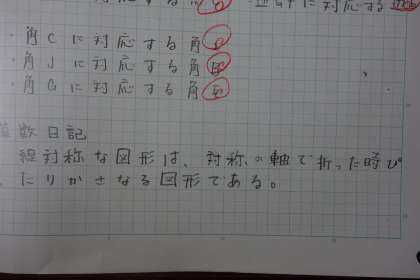 に対応する
・角Cに対応する角
・角Jに対応する角
・角Gに対応する角
算数日記
線対称な図形は、対称の軸で折った時ぴ
たりかさなる図形である。